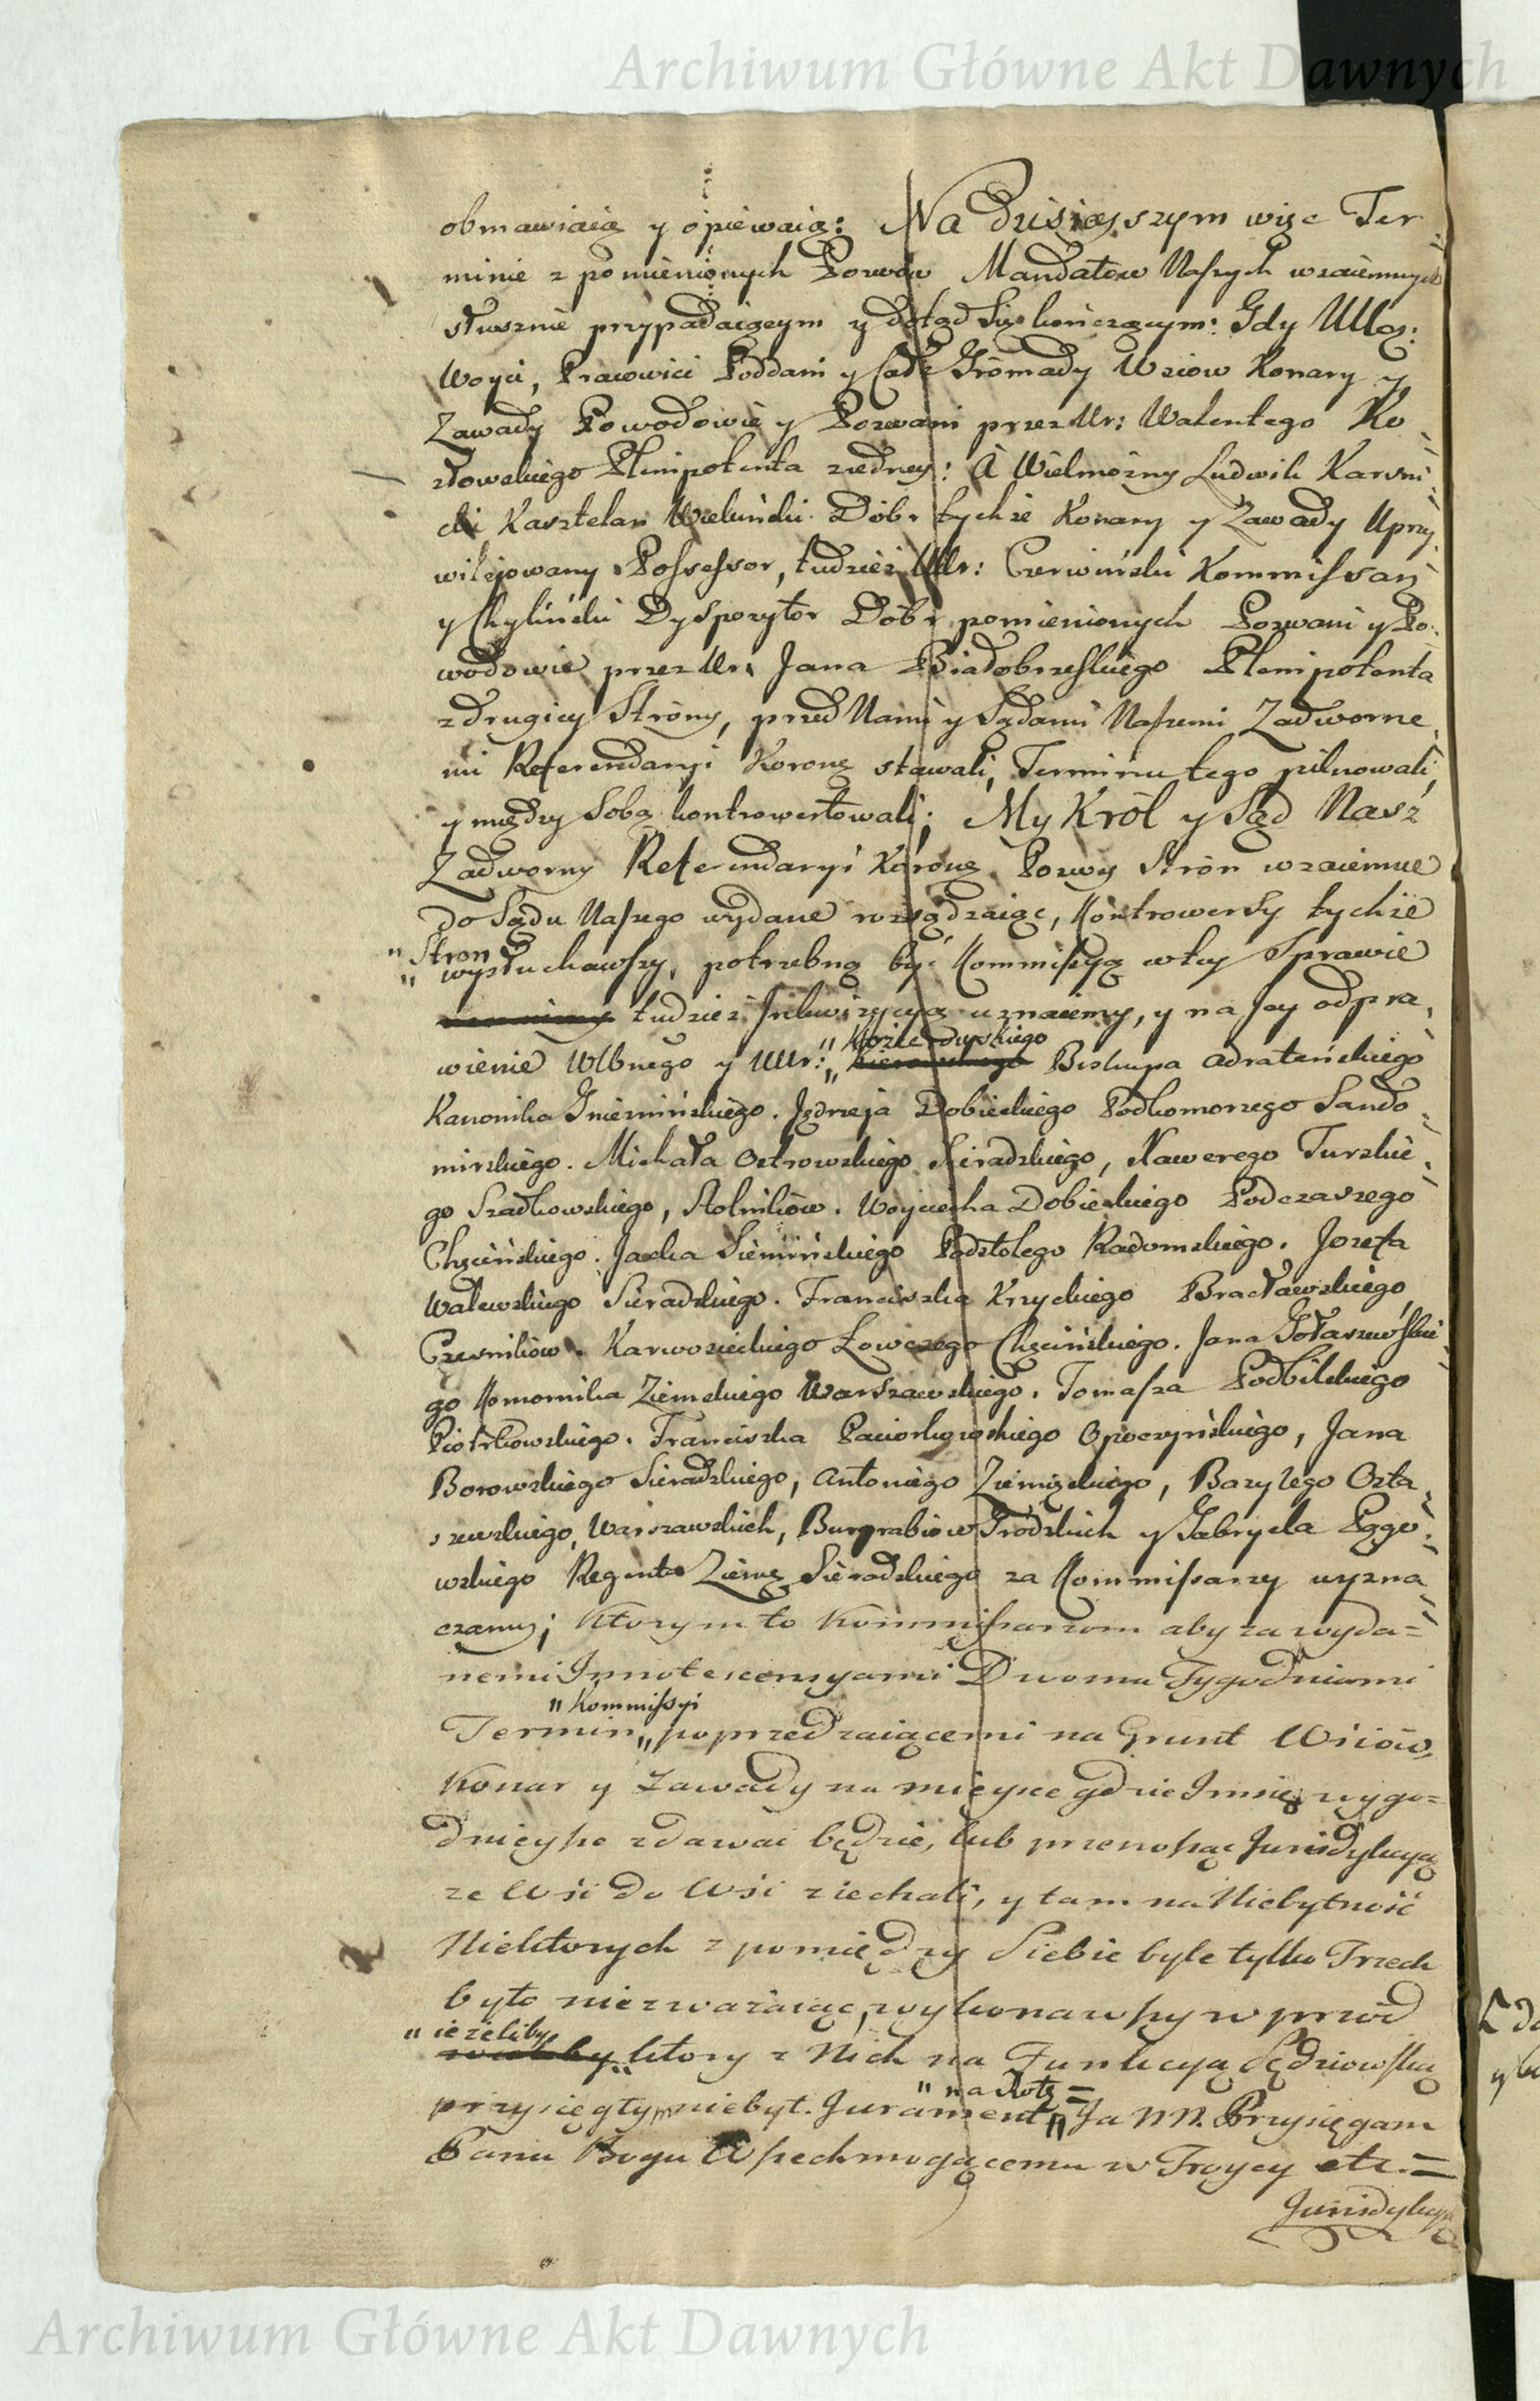 Archiwum Główne Akt Dawnych
obmawiaią y opiewaią: Na Dzisieyszym więc Ter
minie z pomienionych Pozwow Mandatow Naszych wzaiemnych
słusznie przypadaiącym y dotąd się kończącym: Gdy Ulłcz:
Woyci, Pracowici Poddani y Całe Gromady Wsiow Konary y
Zawady Powodowie y Pozwani przez Ur: Walentego Ko
złowskiego Plenipotenta ziedney: A Wielmożny Ludwik Karsni
cki Kasztelan Wieluński Dobr tychże Konary y Zawady Uprzy
wiliiowany Possessor, tudzież UUr: Czerwiński Kommissarz
y Chyliński Dyspozytor Dobr pomienionych Pozwani y Po
wodowie przez Ur: Jana Białobrzeskiego Plenipotenta
z drugiey Strony, przed Nami y Sądami Naszemi Zadworne
mi Referendaryi Koronę stawali, Terminu tego pilnowali
y między Sobą kontrowertowali; My Król y Sąd Nasz
Zadworny Referendaryi Koronę Pozwy Stron wzaiemne
do Sądu Naszego wydane rozsądzaiąc, Kontrowersy tychże
" Stron
" wysłuchawszy, potrzebną być Kommissyą w tey Sprawie
tudzież Inkwizycyą uznaiemy, y na Jey odpra
wienie Wlbnego y UUr: " Kozierowskiego Biskupa Adrateńskiego
Kanonika Gnieznińskiego. Jędrzeja Dobieckiego Podkomorzego Sando
mirskiego. Michała Ostrowskiego Sieradzkiego, Xawerego Turskie
go Szadkowskiego, Stolników. Woyciecha Dobieckiego Podczaszego
Chęcińskiego. Jacka Siemińskiego Podstolego Radomskiego. Jozefa
Walewskiego Sieradzkiego. Franciszka Krzyckiego Bracławskiego
Czesników. Karwosieckiego Łowczego Chęcińskiego. Jana Gołaszewskie
go Komornika Ziemskiego Warszawskiego. Tomasza Podbilskiego
Piotrkowskiego. Franciszka Paciorkowskiego Opoczyńskiego, Jana
Borowskiego Sieradzkiego, Antoniego Ziemięckiego, Bazylego Osta
szewskiego Warszawskich, Burgrabiow Grodzkich y Gabryela Pągo
wskiego Regenta Ziemę Sieradzkiego za Kommissarzy wyzna
czamy; Ktorym to Kommissarzom aby za wyda=
nemi Innotescencyami Dwoma Tygodniami
" Kommissyi
Termin " poprzedzaiącemi na Grunt Wsiów
Konar y Zawady na mieysce gdzie Im się wygo=
dnieysze zdawać będzie, lub przenosząc Jurisdykcyą
ze Wsi do Wsi ziechali, y tam na Niebytność
Niektorych z pomiędzy Siebie byle tylko Trzech
było niezważaiąc, wykonawszy wprzod
" ieżeliby
ktory z Nich na Funkcyą Sędziowską
" na Rotę =
przysięgłym niebył. Jurament " Ja NN. Przysięgam
Panu Bogu Wszechmogącemu w Troycy etc. =
Jurisdykcyą
Archiwum Główne Akt Dawnych